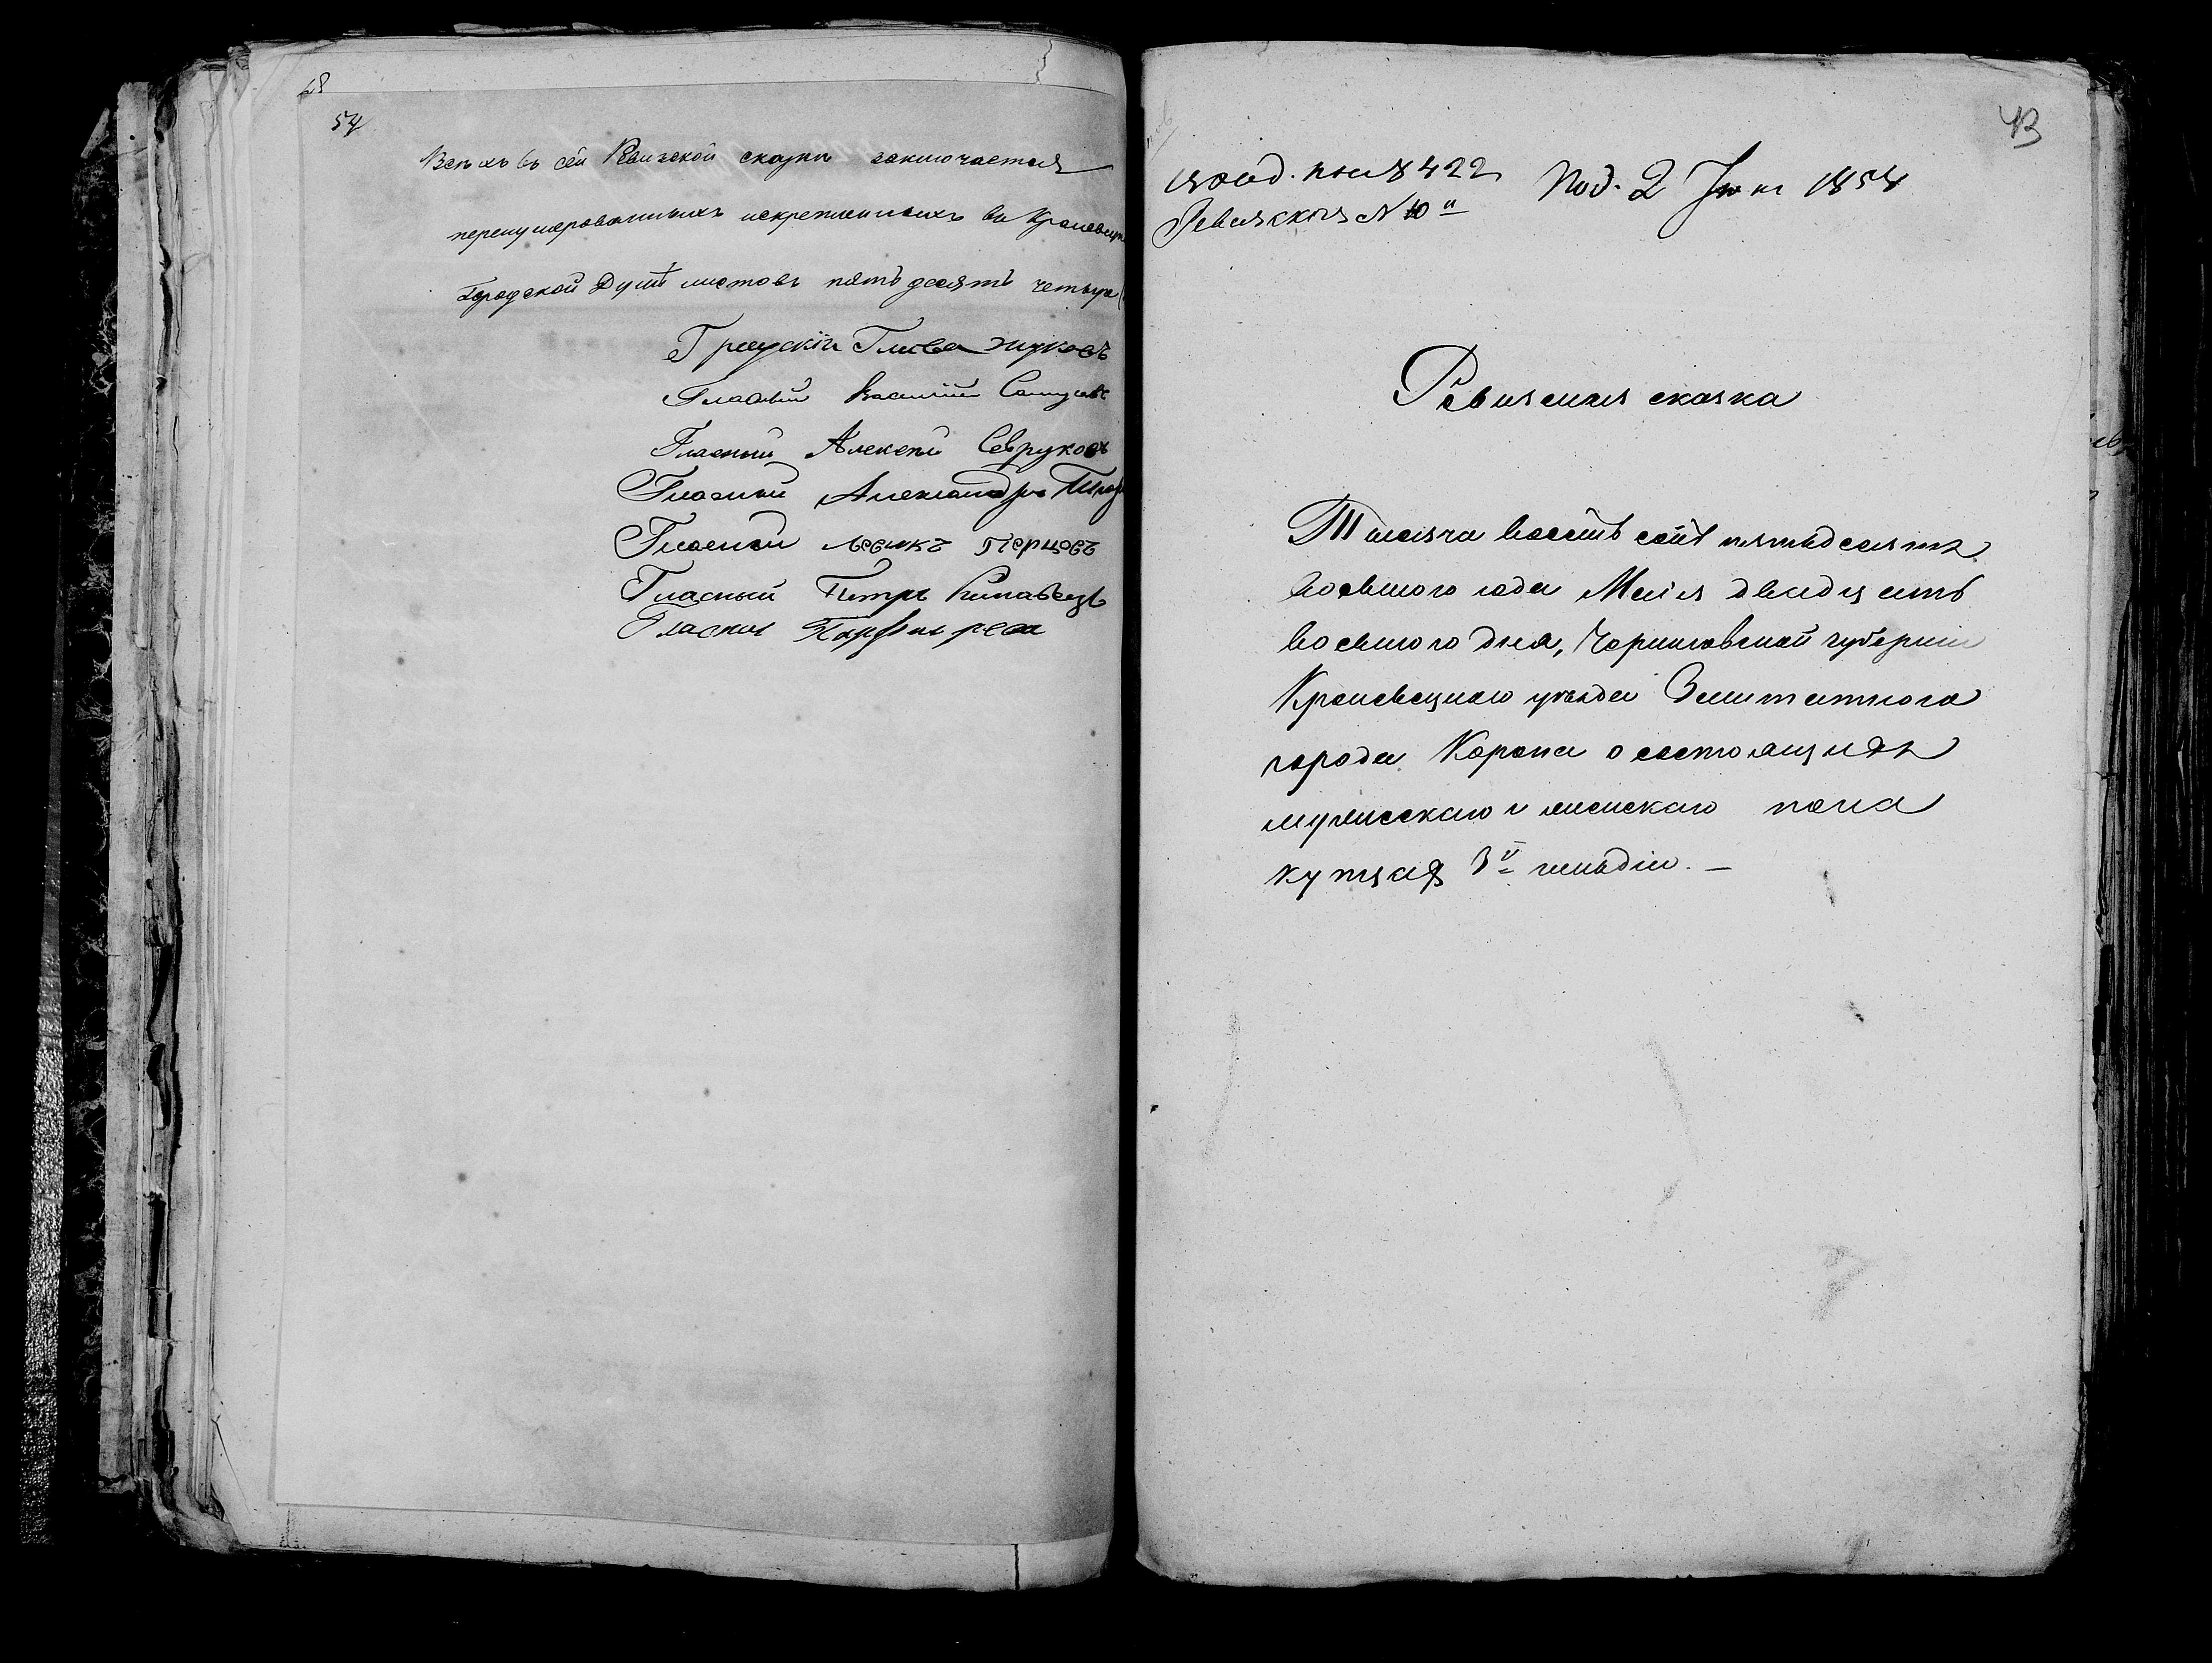 54
Всѣхъ въ сей Ревизской сказкѣ заключается
перенумерованныхъ искрепленныхъ въ Кролевецк
Городской Думѣ листовъ пятьдесятъ четыре
Градскій Глава Жуковъ
Гласный Василій
Гласный Алексей Севруковъ
Гласный Александръ
Гласный Левикъ Перцовъ
Гласный Петръ
Гласный
43
422 Под. 2 Іюн 1858
Ревизская № 10
Ревизская сказка
Тысяча восемь сотъ пятьдесятъ
восьмого года Маія двадцать
восьмого дня, Черниговской губерніи
Кролевецкаго уѣзда Заштатного
города Коропа о состоящихъ
мужескаго и женскаго пола
купцахъ 3й гильдіи. —